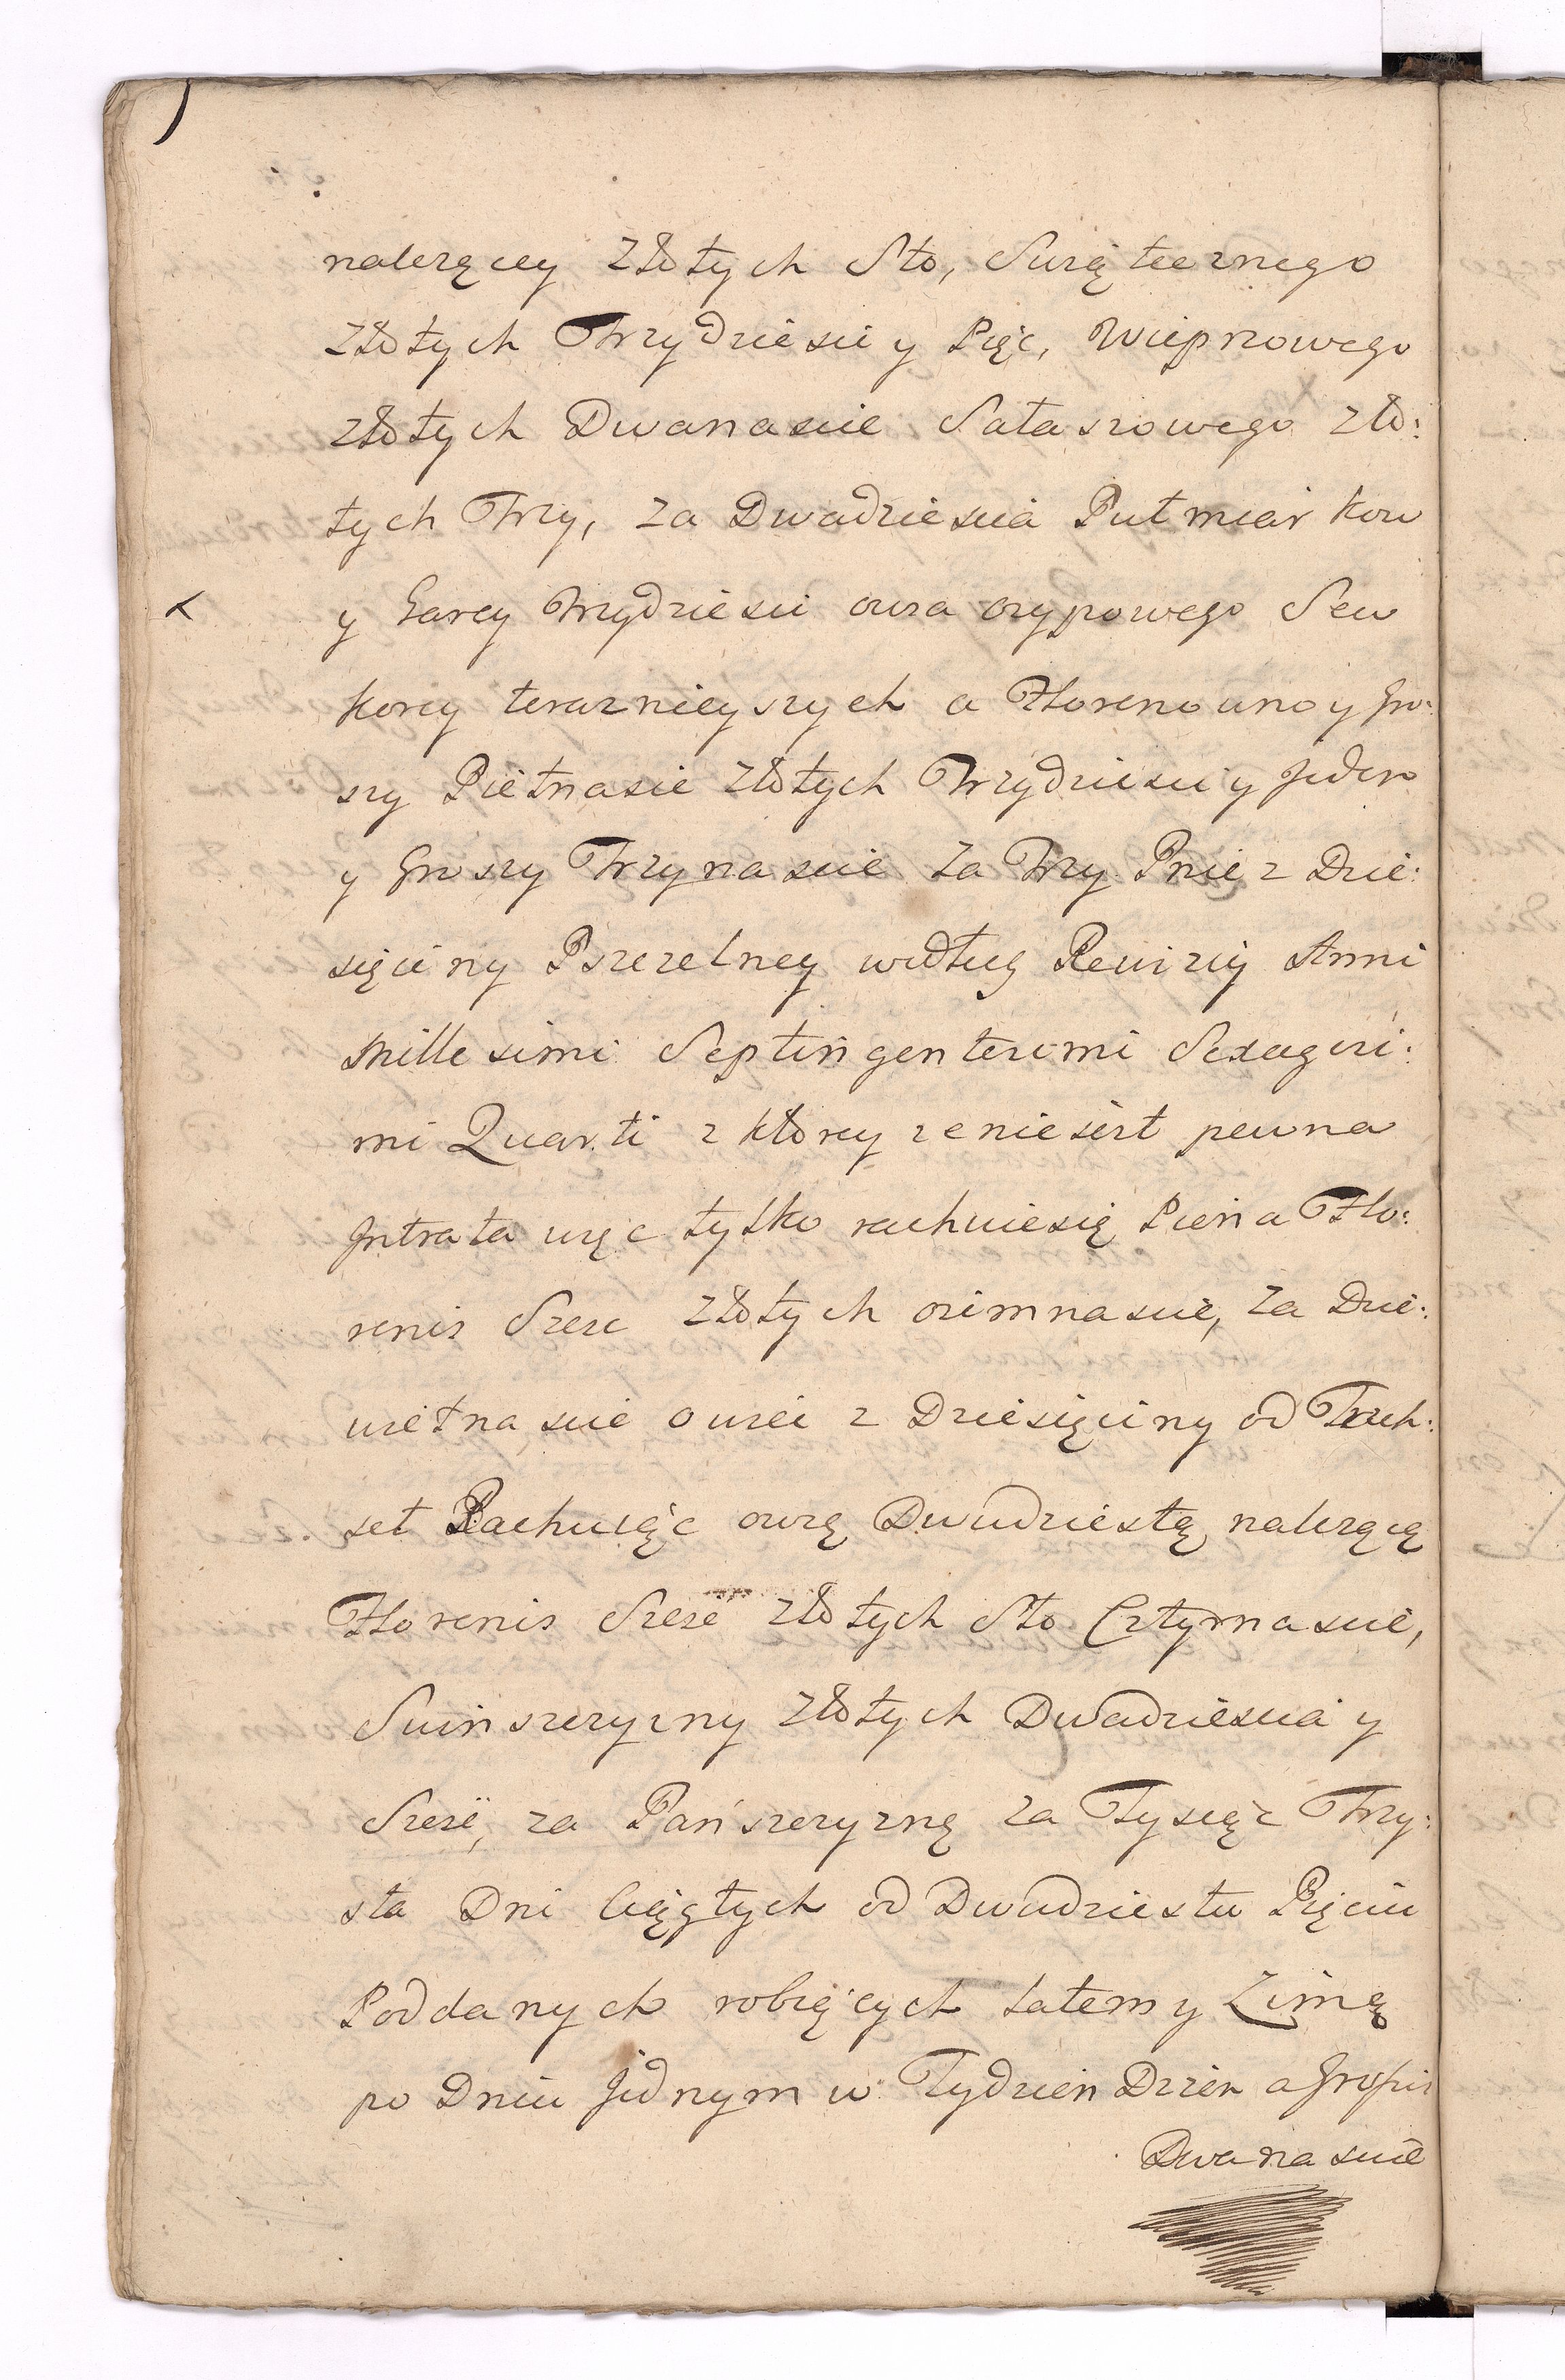 należącey Złotych Sto, Swiątecznego
Złotych Trzydziesci y Pięc, Wieprzowego
złotych Dwanascie Sałaszowego Zło:
tych Trzy, za Dwadziescia Puł miar kow
y Garcy Trzydziesci owsa osypowego Seu
korcy teraznieyszych a Floreno uno y Gro:
szy Piętnascie Złotych Trzydziesci y Jeden
y Groszy Trzynascie Za Trzy Pnie z Dzie:
sięciny Pszczelney według Rewizij Anni
Millesimi Septingentesimi Sexagesi:
mi Quarti z ktorey ze nie jest pewna
Jntrata więc tylko rachuie się Pien a Flo:
renis Szesc Złotych osimnascie, za Dzie:
więtnascie owiec z Dziesięciny od Trzech:
set Rachuiąc owcę Dwudziestą należącą
Florenis Szesc Złotych Sto Cztyrnascie,
Swinszczyzny Złotych Dwadziescia y
Szesc, za Pańszczyznę za Tysiąc Trzy:
sta Dni Ciągłych od Dwudziestu Pięciu
Poddanych robiących Latem y Zimą
po Dniu Jednym w Tydzien Dzien a Grossis
Dwanascie